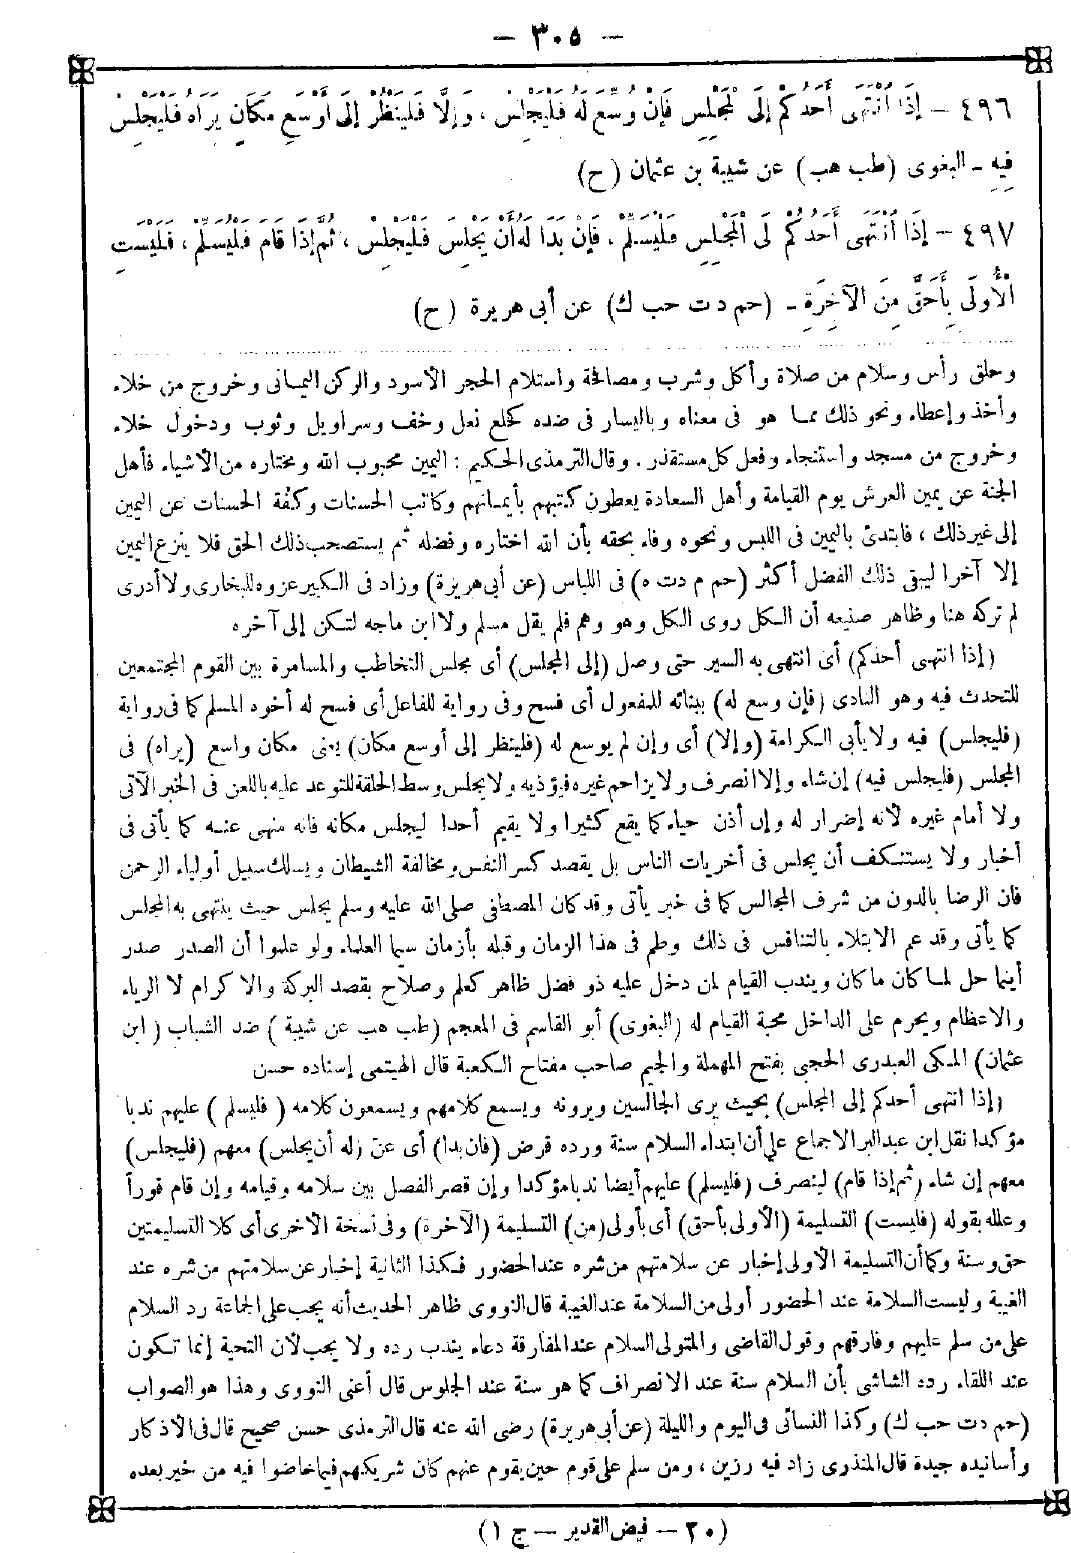 — ٣٠٥ —
٤٩٦ — إِذَا انْتَهَى أَحَدُكُمْ إِلَى الْمَجْلِسِ فَإِنْ وُسِّعَ لَهُ فَلْيَجْلِسْ ، وَإِلَّا فَلْيَنْظُرْ إِلَى أَوْسَعِ مَكَانٍ يَرَاهُ فَلْيَجْلِسْ
فِيهِ ـ البغوى (طب هب) عن شيبة بن عثمان (ح)
٤٩٧ — إِذَا انْتَهَى أَحَدُكُمْ إِلَى الْمَجْلِسِ فَلْيُسَلِّمْ ، فَإِنْ بَدَا لَهُ أَنْ يَجْلِسَ فَلْيَجْلِسْ ، ثُمَّ إِذَا قَامَ فَلْيُسَلِّمْ ، فَلَيْسَتِ
الْأُولَى بِأَحَقَّ مِنَ الْآخِرَةِ ـ (حم د ت حب ك) عن أبى هريرة (ح)
وحلق رأس وسلام من صلاة وأكل وشرب ومصافحة واستلام الحجر الأسود والركن اليمانى وخروج من خلاء
وأخذ وإعطاء ونحو ذلك مما هو فى معناه وباليسار فى ضده كخلع نعل وخف وسراويل وثوب ودخول خلاء
وخروج من مسجد واستنجاء وفعل كل مستقذر . وقال الترمذى الحكيم : اليمين محبوب الله ومختاره من الأشياء فأهل
الجنة عن يمين العرش يوم القيامة وأهل السعادة يعطون كتبهم بأيمانهم وكاتب الحسنات وكفة الحسنات عن اليمين
إلى غير ذلك ، فابتدئ باليمين فى اللبس ونحوه وفاء بحقه بأن الله اختاره وفضله ثم يستصحب ذلك الحق فلا ينزع اليمين
إلا آخرا ليبقى ذلك الفضل أكثر (حم م د ت ه) فى اللباس (عن أبى هريرة) وزاد فى الكبير عزوه للبخارى ولا أدرى
لم تركه هنا وظاهر صنيعه أن الكل روى الكل وهو وهم فلم يقل مسلم ولا ابن ماجه لتكن إلى آخره
(إذا انتهى أحدكم) أى انتهى به السير حتى وصل (إلى المجلس) أى مجلس التخاطب والمسامرة بين القوم المجتمعين
للتحدث فيه وهو النادى (فإن وسع له) ببنائه للمفعول أى فسح وفى رواية للفاعل أى فسح له أخوه المسلم كما فى رواية
(فليجلس) فيه ولا يأبى الكرامة (وإلا) أى وإن لم يوسع له (فلينظر إلى أوسع مكان) يعنى مكان واسع (يراه) فى
المجلس (فليجلس فيه) إن شاء وإلا انصرف ولا يزاحم غيره فيؤذيه ولا يجلس وسط الحلقة للتوعد عليه باللعن فى الخبر الآتى
ولا أمام غيره لأنه إضرار له وإن أذن حياء كما يقع كثيرا ولا يقيم أحدا ليجلس مكانه فانه منهى عنه كما يأتى فى
أخبار ولا يستنكف أن يجلس فى أخريات الناس بل يقصد كسر النفس ومخالفة الشيطان ويسلك سبيل أولياء الرحمن
فان الرضا بالدون من شرف المجالس كما فى خبر يأتى وقد كان المصطفى صلى الله عليه وسلم يجلس حيث ينتهى به المجلس
كما يأتى وقد عم الابتلاء بالتنافس فى ذلك وطم فى هذا الزمان وقبله بأزمان سيما العلماء ولو علموا أن الصدر صدر
أينما حل لما كان ما كان ويندب القيام لمن دخل عليه ذو فضل ظاهر كعلم وصلاح بقصد البركة والاكرام لا الرياء
والاعظام ويحرم على الداخل محبة القيام له (البغوى) أبو القاسم فى المعجم (طب هب عن شيبة) ضد الشباب (ابن
عثمان) المكى العبدرى الحجبى بفتح المهملة والجيم صاحب مفتاح الكعبة قال الهيتمى إسناده حسن
(إذا انتهى أحدكم إلى المجلس) بحيث يرى الجالسين ويرونه ويسمع كلامهم ويسمعون كلامه (فليسلم) عليهم ندبا
مؤكدا نقل ابن عبد البر الاجماع على أن ابتداء السلام سنة ورده فرض (فان بدا) أى عنّ (له أن يجلس) معهم (فليجلس)
معهم إن شاء (ثم إذا قام) لينصرف (فليسلم) عليهم أيضا ندبا مؤكدا وإن قصر الفصل بين سلامه وقيامه وإن قام فوراً
وعلله بقوله (فليست) التسليمة (الأولى بأحق) أى بأولى (من) التسليمة (الآخرة) وفى نسخة الأخرى أى كلا التسليمتين
حق وسنة وكما أن التسليمة الأولى إخبار عن سلامتهم من شره عند الحضور فكذا الثانية إخبار عن سلامتهم من شره عند
الغيبة وليست السلامة عند الحضور أولى من السلامة عند الغيبة قال النووى ظاهر الحديث أنه يجب على الجماعة رد السلام
على من سلم عليهم وفارقهم وقول القاضى والمتولى السلام عند المفارقة دعاء يندب رده ولا يجب لأن التحية إنما تكون
عند اللقاء رده الشاشى بأن السلام سنة عند الانصراف كما هو سنة عند الجلوس قال أعنى النووى وهذا هو الصواب
(حم د ت حب ك) وكذا النسائى فى اليوم والليلة (عن أبى هريرة) رضى الله عنه قال الترمذى حسن صحيح قال فى الأذكار
وأسانيده جيدة قال المنذرى زاد فيه رزين ، ومن سلم على قوم حين يقوم عنهم كان شريكهم فيما خاضوا فيه من خير بعده
(٢٠ — فيض القدير — ج ١)